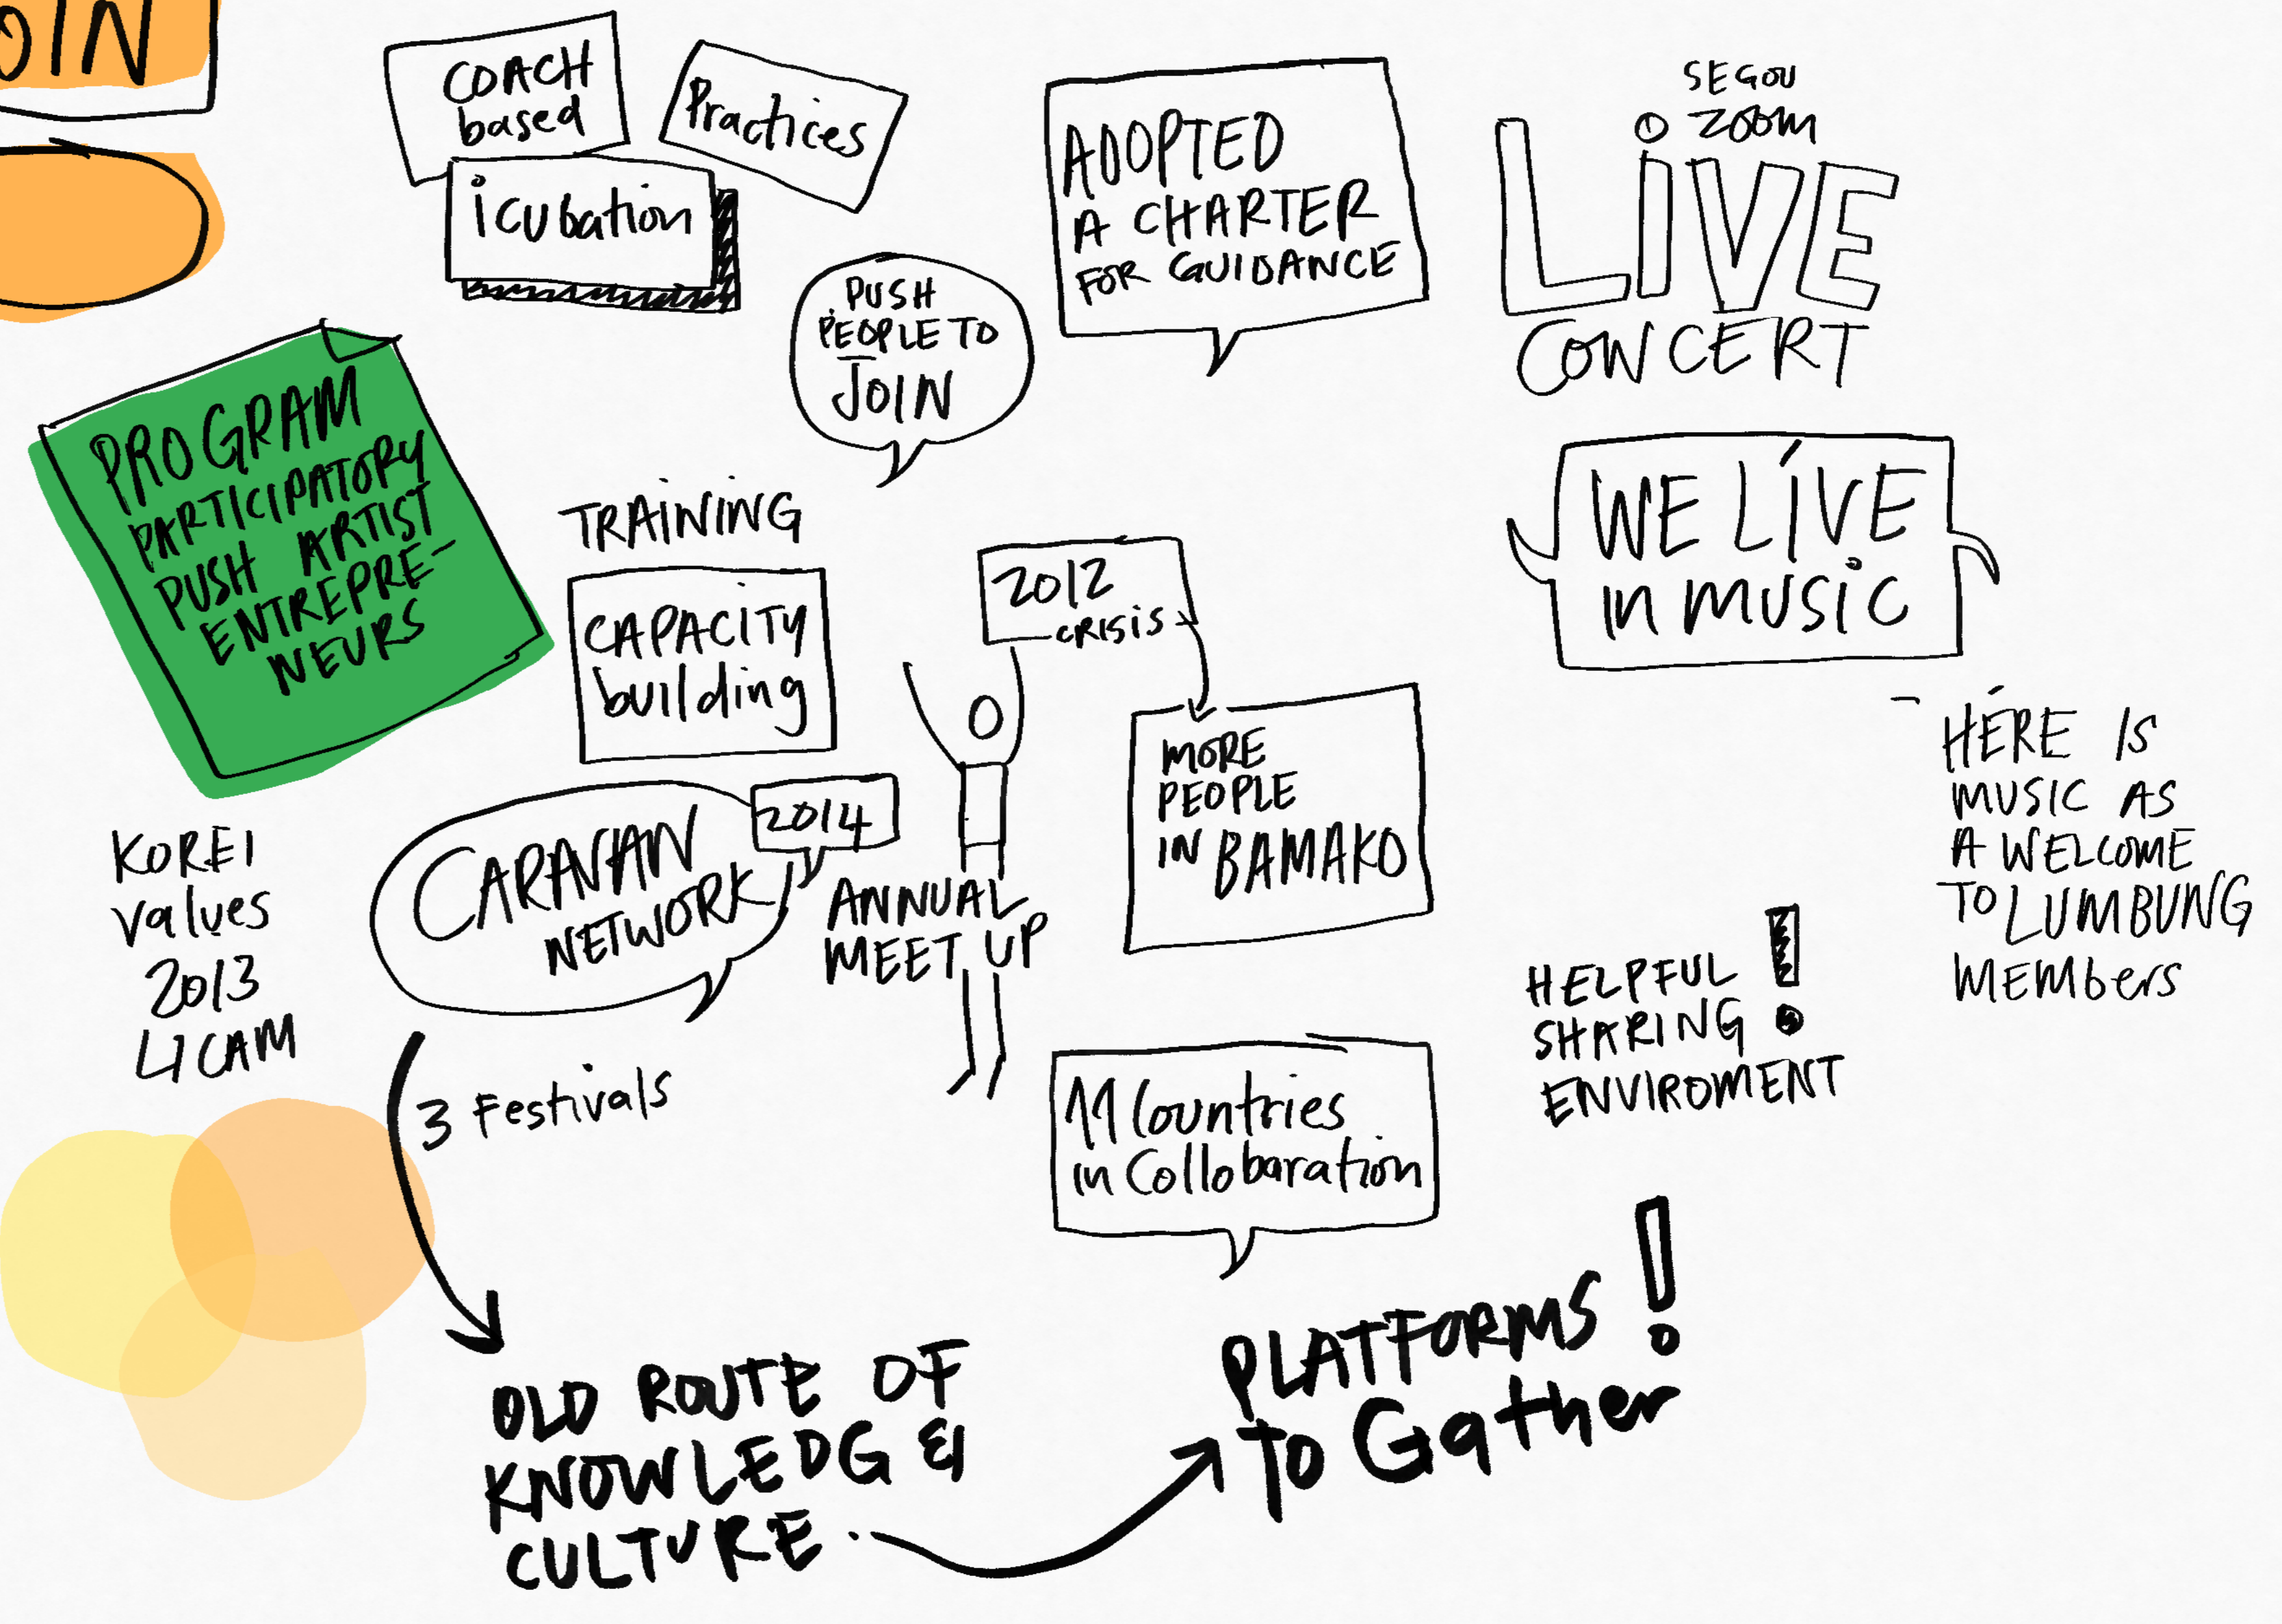 OIN
COACH
based
Practices
icubation
PUSH
PEOPLE TO
JOIN
ADOPTED
A CHARTER
FOR GUIDANCE
SEGOU
ZOOM
LiVE
CONCERT
PROGRAM
PARTICIPATORY
PUSH ARTIST
ENTREPRE-
NEURS
TRAiNiNG
CAPACiTY
building
2012
CRiSiS
WE LIVE
in MUSiC
MORE
PEOPLE
IN BAMAKO
HERE IS
MUSIC AS
A WELCOME
TO LUMBUNG
MEMbers
KOREI
values
2013
LICAM
CARAVAN
NETWORK
2014
ANNUAL
MEET UP
3 Festivals
HELPFUL
SHARING !
ENVIROMENT
11 Countries
in Collobaration
OLD ROUTE OF
KNOWLEDG &
CULTURE
PLATFORMS !
TO Gather